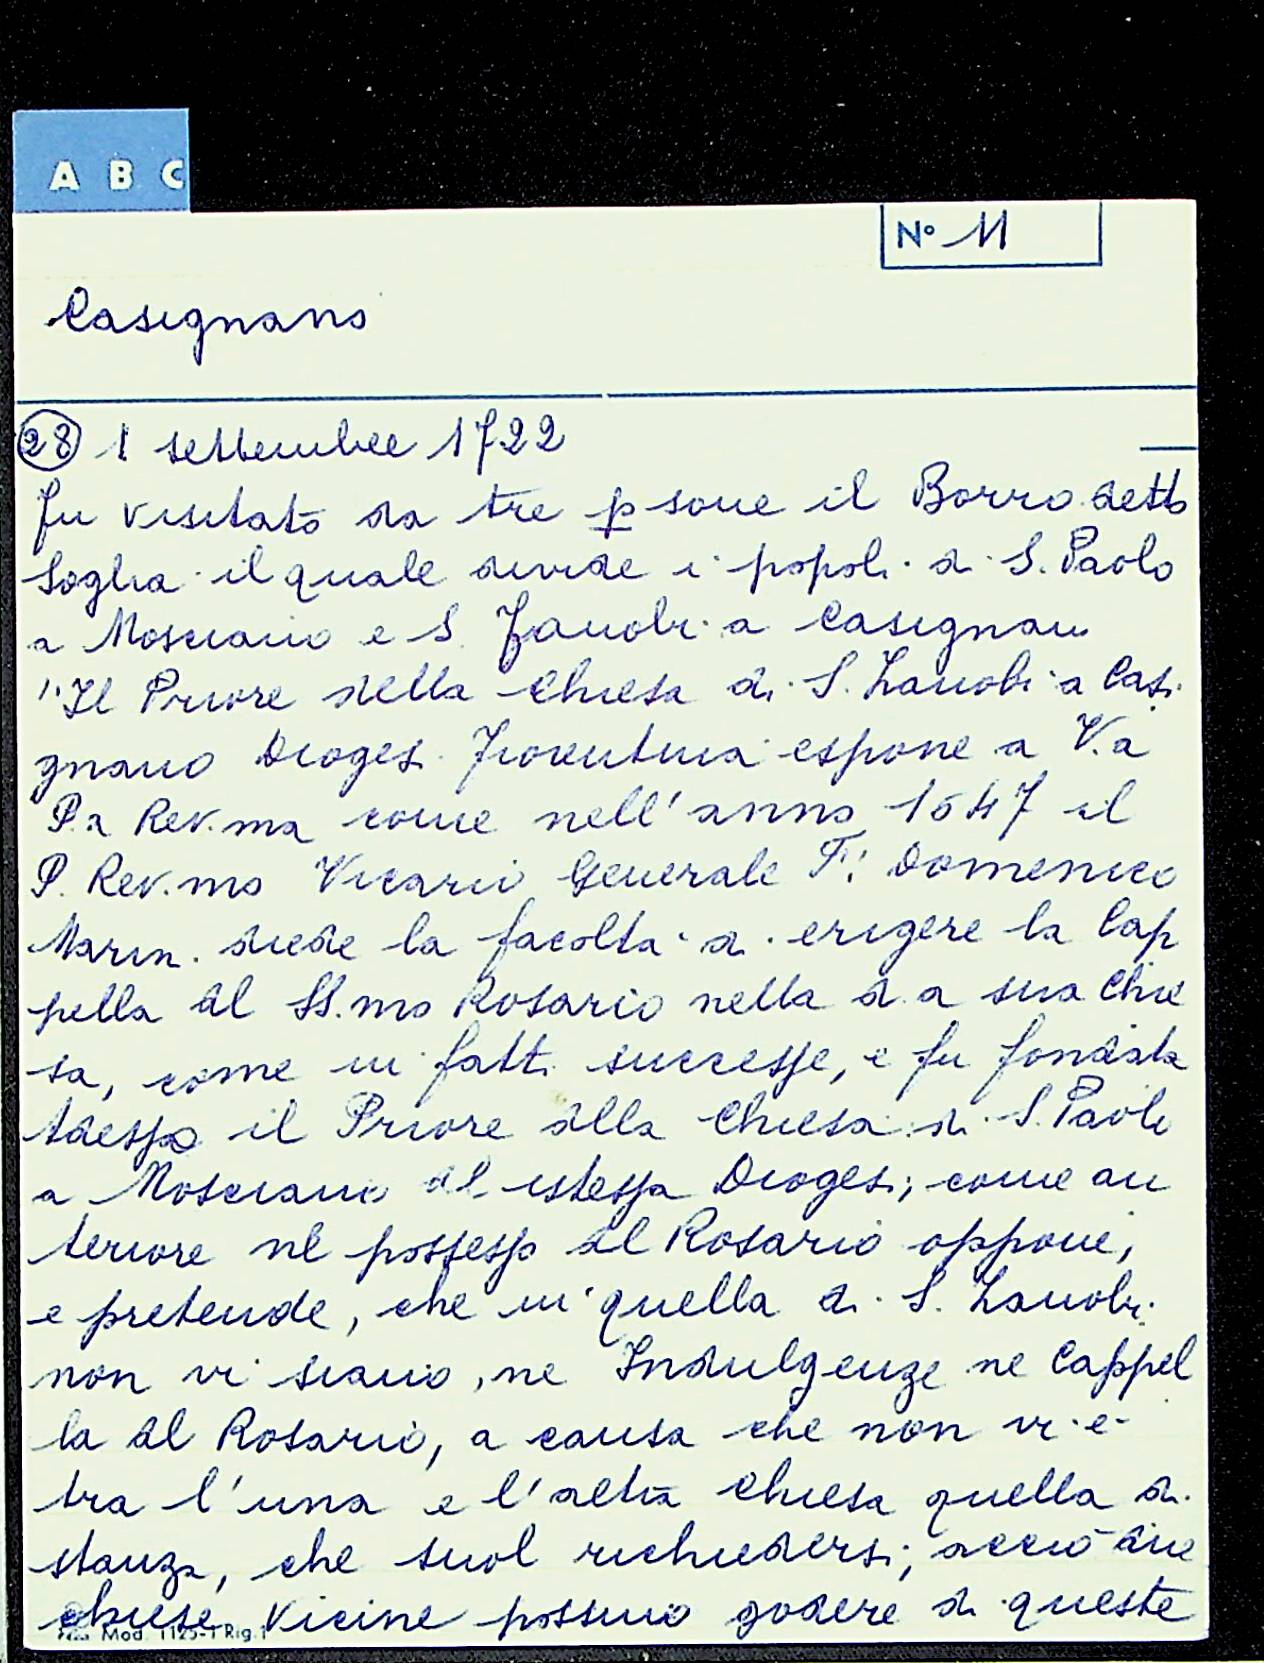 A B C
N° 11
Casignano
28 1 settembre 1722
Fu visitato da tre psone il Borro detto
Soglia il quale divide i popoli di S. Paolo
a Mosciano e S. Zanobi a Casignano
1. Il Priore della Chiesa di S. Zanobi a Casi
gnano Dioges. Fiorentina espone a V.a
P.a Rev.ma come nell'anno 1547 il
P. Rev.mo Vicario Generale F: Domenico
Marin. diede la facolta di erigere la Cap
pella dl SS.mo Rosario nella d.a sua Chie
sa, come in fatti successe, e fu fondata
adesso il Priore dlla Chiesa di S. Paolo
a Mosciano dl istessa Dioges; come an
teriore nl possesso dl Rosario oppone,
e pretende, che in quella di S. Zanobi
non vi siano, ne Indulgenze ne Cappel
la dl Rosario, a causa che non vi e
tra l'una e l'altra Chiesa quella di
stanza, che suol richiedersi; accio due
chiese vicine possino godere di queste
Mod. 1125-1 Rig.1